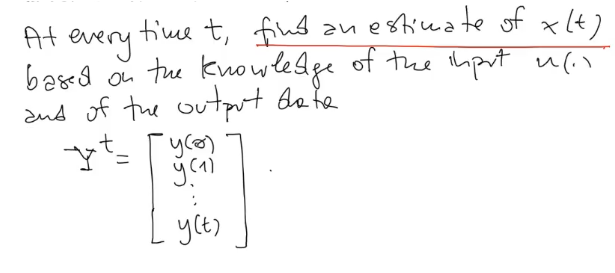 At every time t, find an estimate of x(t)
based on the knowledge of the input u(.)
and of the output data
Y^t = [ y(0)
y(1)
⋮
y(t) ]